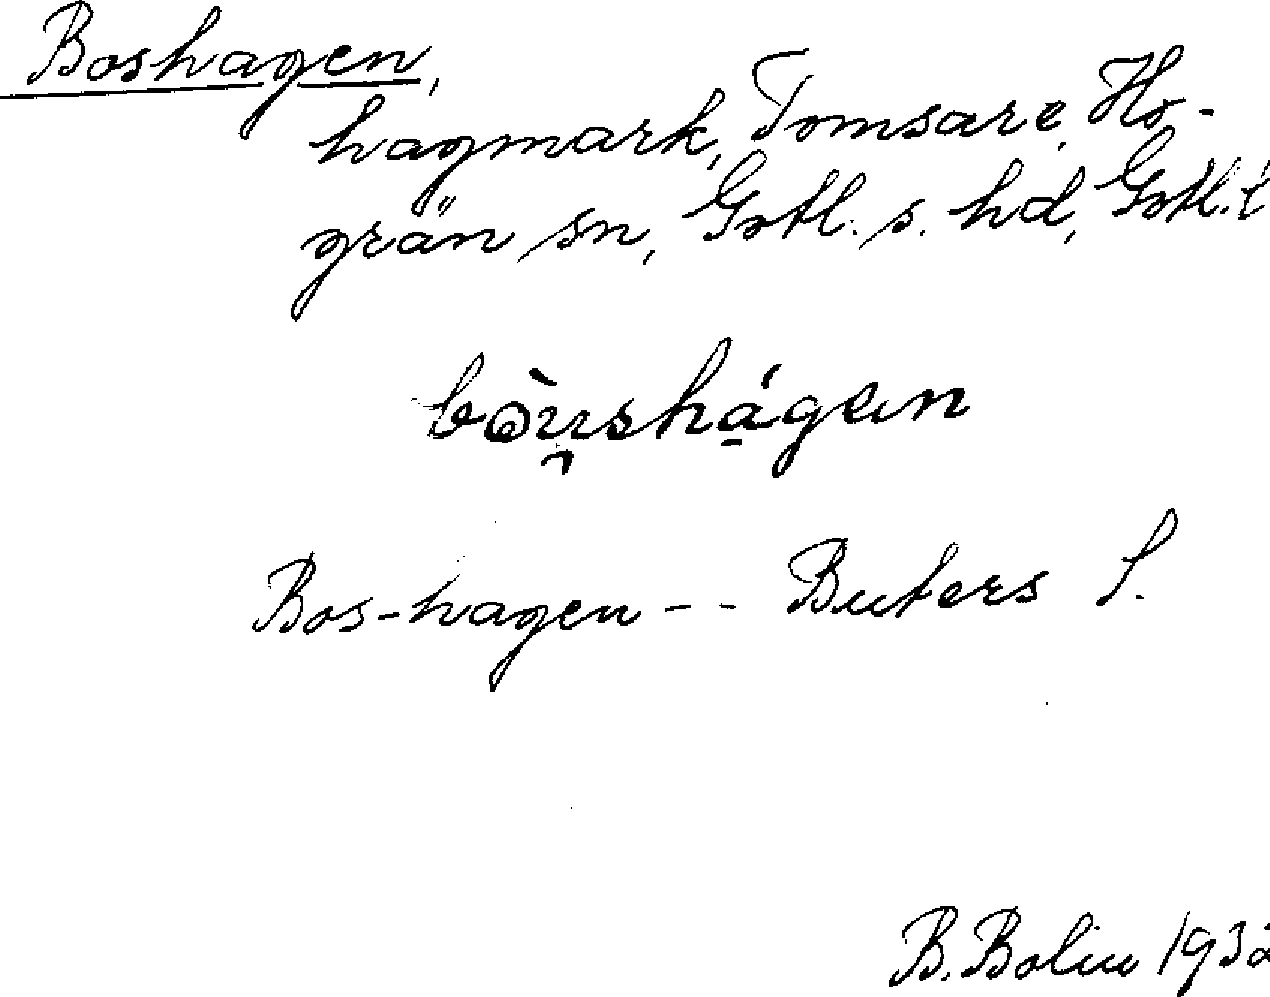 Boshagen,
hagmark, Tomsare, Ho-
grän sn, Gotl. s. hd, Gotl. l
bòu̯shágen
Bos-hagen -- Buters S.
B. Bolin 1932